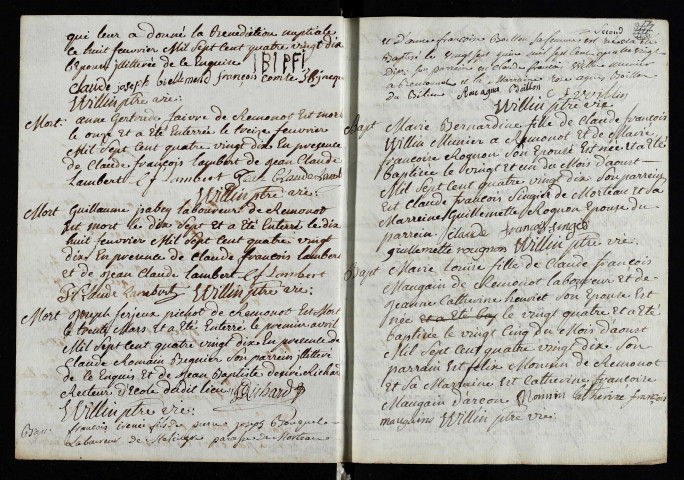 qui leur a donné la Benediction nuptiale
ce huit feuvrier Mil Sept Cent quatre vingt dix
L'Epouse illiterée de ce Enquise IBIPF
Claude joseph françois comte
Willin ptre vre:
Mort: anne Gertride faivre de Remonot Est morte
le onze et a Eté Enterrée le treize feuvrier
Mil Sept Cent quatre vingt dix En presence
de Claude françois lambert de jean Claude
Lambert Cf Lambert
Willin ptre vre:
Mort Guillaume jsabey laboureur de Remonot
Est mort le dix Sept et a Eté Enterré le dix
huit feuvrier Mil Sept Cent quatre vingt
dix En presence de Claude françois lambert
et de jean Claude lambert Cf Lambert
Claude Lambert Willin ptre vre:
Mort joseph pichot de Remonot Est Mort
le trente Mars et a Eté Enterré le premier avril
Mil Sept Cent quatre vingt dix En presence de
Claude Romain Son parrein illiteré
de ce Enquis et de jean Baptiste Richard
Recteur d'Ecole dudit lieu Richard
Willin ptre vre:
Bapt. françois fils de joseph
Laboureur de paroisse de Morteau
et d'anne françoise Baillon sa femme est
Baptisé le vingt sept mil sept cent quatre vingt
dix son parrein est claude françois Willin munier
a Remonot et la Marraine Baillon
du Bélieu Rouagna Baillon
Willin ptre vre
Bapt Marie Bernardine fille de Claude françois
Willin Munier a Remonot et de Marie
francoise Rognon Son Epouse Est née et a Eté
baptisée le vingt et un du Mois daoust
Mil Sept Cent quatre vingt dix Son parrein
Est Claude francois Singier de Morteau et Sa
Marreine Guillemette Rognon Epouse du
parrein Claude françois Singey
guillemette rougnon Willin ptre vre:
Bapt Marie Louise fille de Claude francois
Maugain de Remonot laboureur et de
jeanne Catherine henriet Son Epouse Est
née et a Eté le vingt quatre et a Eté
baptisée le vingt Cinq du Mois daoust
Mil Sept Cent quatre vingt dix Son
parrain Est felix Monnin de Remonot
et Sa Marraine Est Catherine francoise
Maugain d'arcon Monnin Catherine françois
maugains Willin ptre vre: